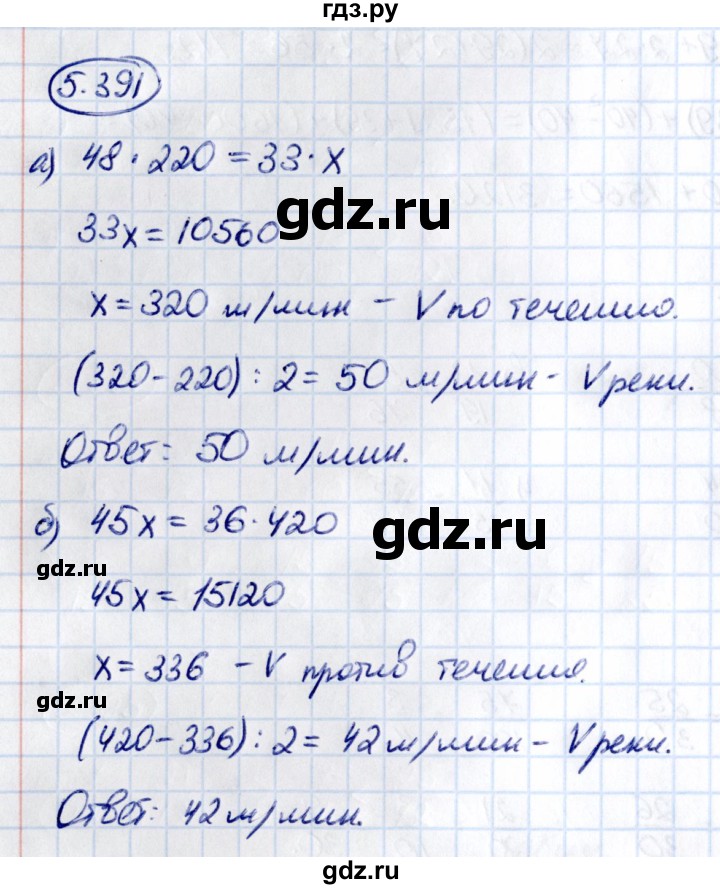 гдз.ру
5.391
а) 48·220=33·x
33x=10560
gdz.ru
x=320 м/мин - V по течению.
(320-220):2=50 м/мин- V реки.
Ответ: 50 м/мин.
б) 45x=36·420
gdz.ru
gdz.ru
45x=15120
x=336 -V против течения.
gdz.ru
(420-336):2=42м/мин- V реки.
Ответ: 42м/мин.
gdz.ru